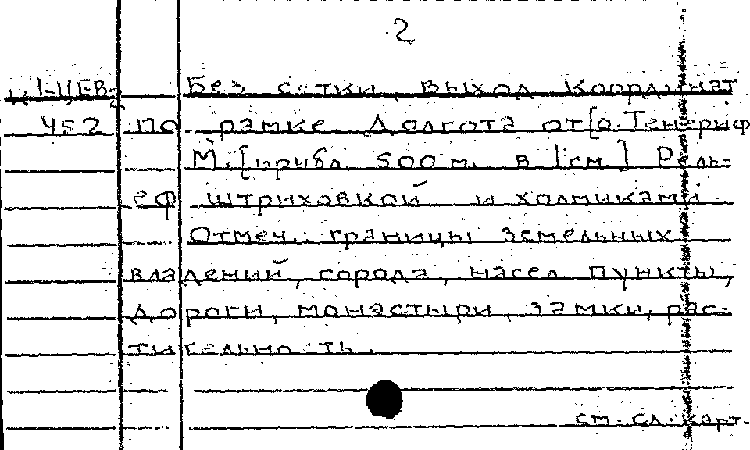 2
Без сетки, выход координат
452 по рамке Долгота от [о. Тенериф
М. [прибл. 500 м. в 1 см.] Рель-
еф штриховкой и холмиками
Отмеч. границы земельных
владений, города, насел пункты,
дороги, монастыри, замки, рас-
тительность.
см. сл. карт.